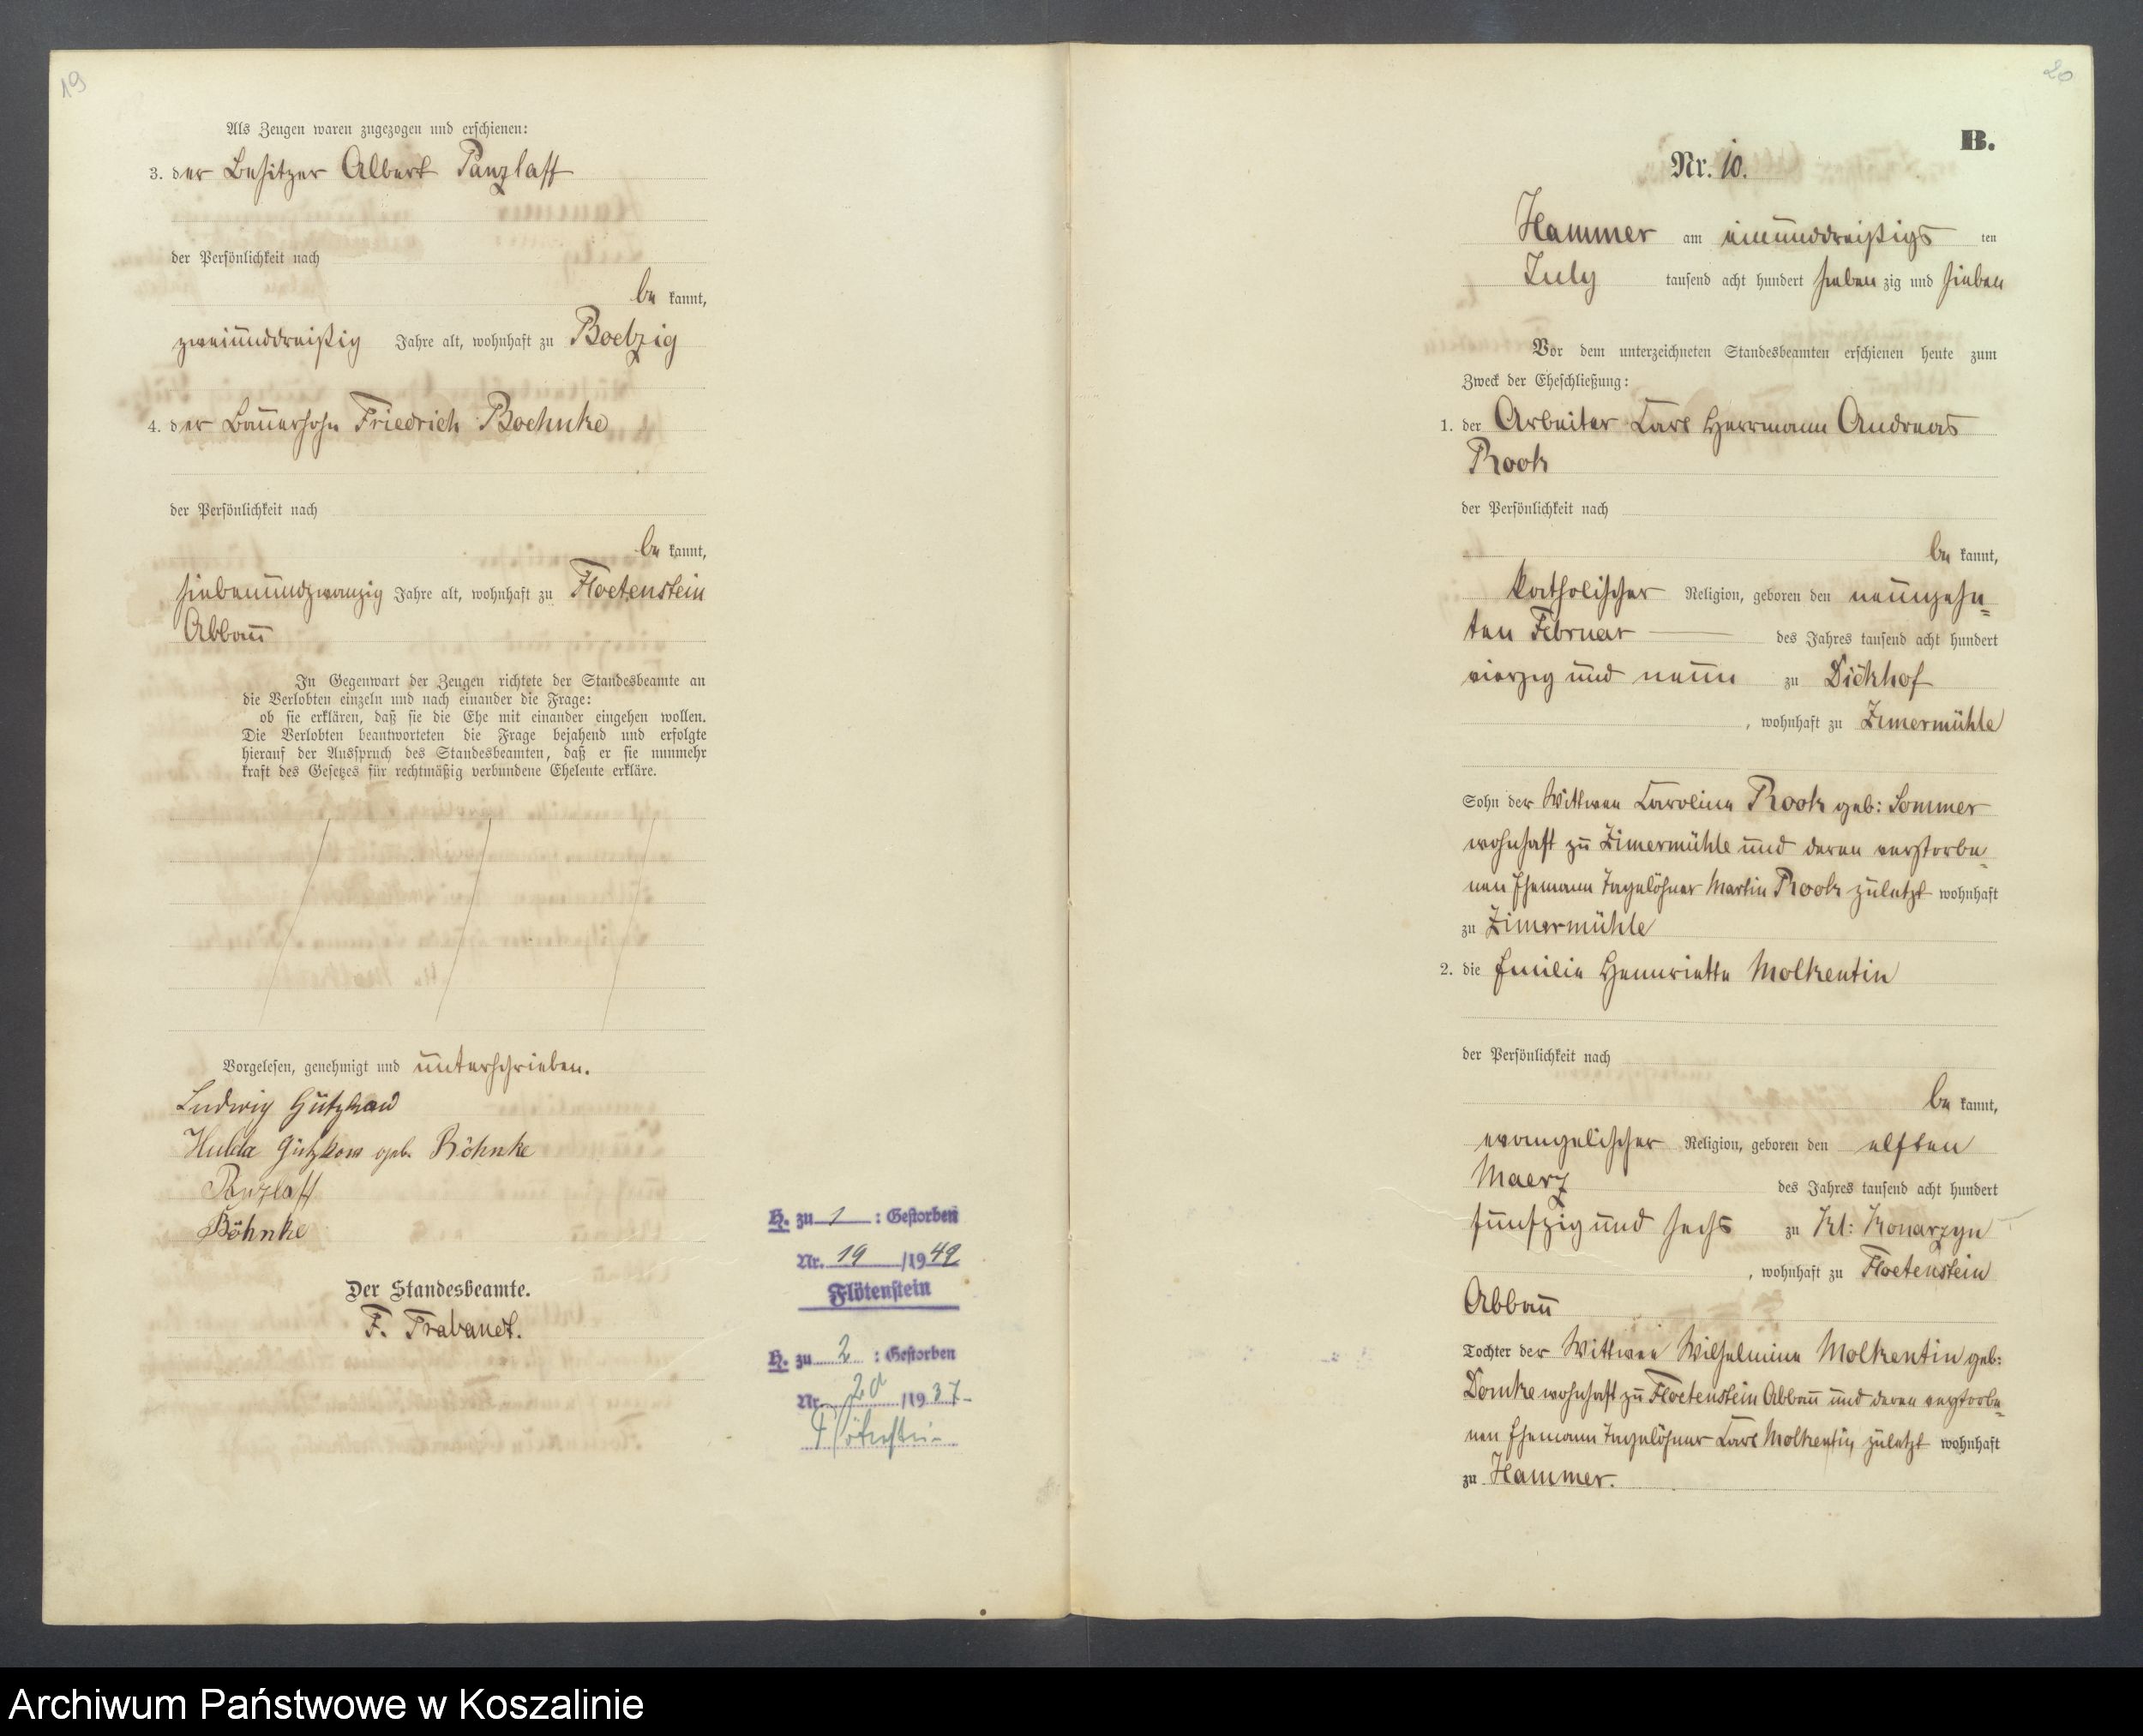 19
Als Zeugen waren zugezogen und erschienen:
3. der Besitzer Albert Panzlaff
der Persönlichkeit nach
be kannt,
zweiunddreißig Jahre alt, wohnhaft zu Boelzig
4. der Bauersohn Friedrich Boehnke
der Persönlichkeit nach
be kannt,
siebenundzwanzig Jahre alt, wohnhaft zu Floetenstein
Abbau
In Gegenwart der Zeugen richtete der Standesbeamte an
die Verlobten einzeln und nach einander die Frage:
ob sie erklären, daß sie die Ehe mit einander eingehen wollen.
Die Verlobten beantworteten die Frage bejahend und erfolgte
hierauf der Ausspruch des Standesbeamten, daß er sie nunmehr
kraft des Gesetzes für rechtmäßig verbundene Eheleute erkläre.
Vorgelesen, genehmigt und unterschrieben.
Ludwig Gützkow
Hulda Gützkow geb. Böhnke
Panzlaff
Böhnke
Der Standesbeamte.
F. Trabandt.
H. zu 1 : Gestorben
Nr. 19 /1942
Flötenstein
H. zu 2 : Gestorben
Nr. 20 /1937
Flötenstein
20
B.
Nr. 10.
Hammer am einunddreißigs ten
July tausend acht hundert sieben zig und sieben
Vor dem unterzeichneten Standesbeamten erschienen heute zum
Zweck der Eheschließung:
1. der Arbeiter Carl Herrmann Andreas
Rook
der Persönlichkeit nach
be kannt,
katholischer Religion, geboren den neunzehn=
ten Februar des Jahres tausend acht hundert
vierzig und neun zu Dickhof
, wohnhaft zu Zimermühle
Sohn der Wittwee Caroline Rook geb: Sommer
wohnhaft zu Zimermühle und deren verstorbe=
nen Ehemann Tagelöhner Martin Rook zuletzt wohnhaft
zu Zimermühle
2. die Emilie Hennriette Molkentin
der Persönlichkeit nach
be kannt,
evangelischer Religion, geboren den elften
Maerz des Jahres tausend acht hundert
fünfzig und sechs zu Kl: Konarzyn
, wohnhaft zu Floetenstein
Abbau
Tochter der Wittwee Wilhelmine Molkentin geb:
Domke wohnhaft zu Floetenstein Abbau und deren verstorbe=
nen Ehemann Tagelöhner Carl Molkentin zuletzt wohnhaft
zu Hammer.
Archiwum Państwowe w Koszalinie